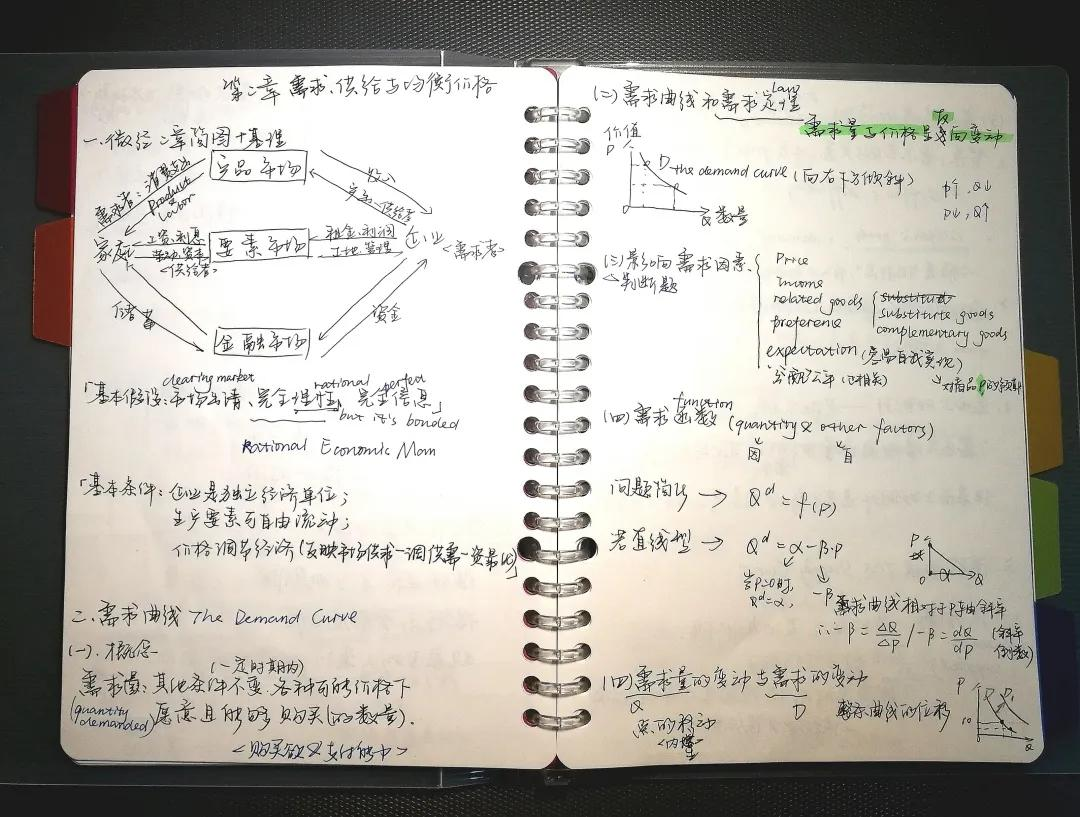 第二章 需求、供给与均衡价格
一、微经二章简图+基理
产品市场
需求者：消费支出
product
labor
供给者
家庭
工资、利息
劳动、资本
<供给者>
要素市场
租金、利润
土地、管理
企业
<需求者>
储蓄
金融市场
资金
clearing market rational perfect
「基本假设：市场出清、完全理性、完全信息」
but it's bonded
Rational Economic Man
「基本条件：企业是独立经济单位；
生产要素可自由流动；
价格调节经济(反映市场供求—调供需—资最优」
二、需求曲线 The Demand Curve
(一)、概念
(一定时期内)
需求量：其他条件不变，各种可能价格下
(quantity demanded) 愿意且能够购买(的数量).
<购买欲&支付能力>
(二)需求曲线和需求定理
law
需求量与价格呈反向变动
价值
P
D the demand curve (向右下方倾斜)
0
Q 数量
P↑, Q↓
P↓, Q↑
(三)影响需求因素
△判断题
Price
income
related goods
substitute goods
complementary goods
preference
expectation (容易自我实现)
↘对商品P的预期
分配公平(正相关)
function
(四)需求函数 (quantity & other factors)
因 自
问题简化 → Qᵈ = f(P)
若直线型 → Qᵈ = α - β·P
当P=0时, -β
Qᵈ=α,
P
0 α Q
需求曲线相对于P轴斜率
∴ -β = ΔQ/ΔP / -β = dQ/dP (斜率倒数)
(四)需求量的变动与需求的变动
Q D
点的移动 曲线的位移
P
10
Q